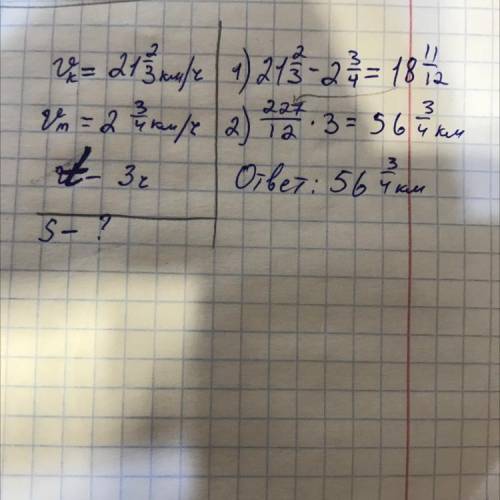 vₖ = 21 2/3 км/ч
vₘ = 2 3/4 км/ч
t - 3ч
S - ?
1) 21 2/3 - 2 3/4 = 18 11/12
2) 227/12 · 3 = 56 3/4 км
Ответ: 56 3/4 км